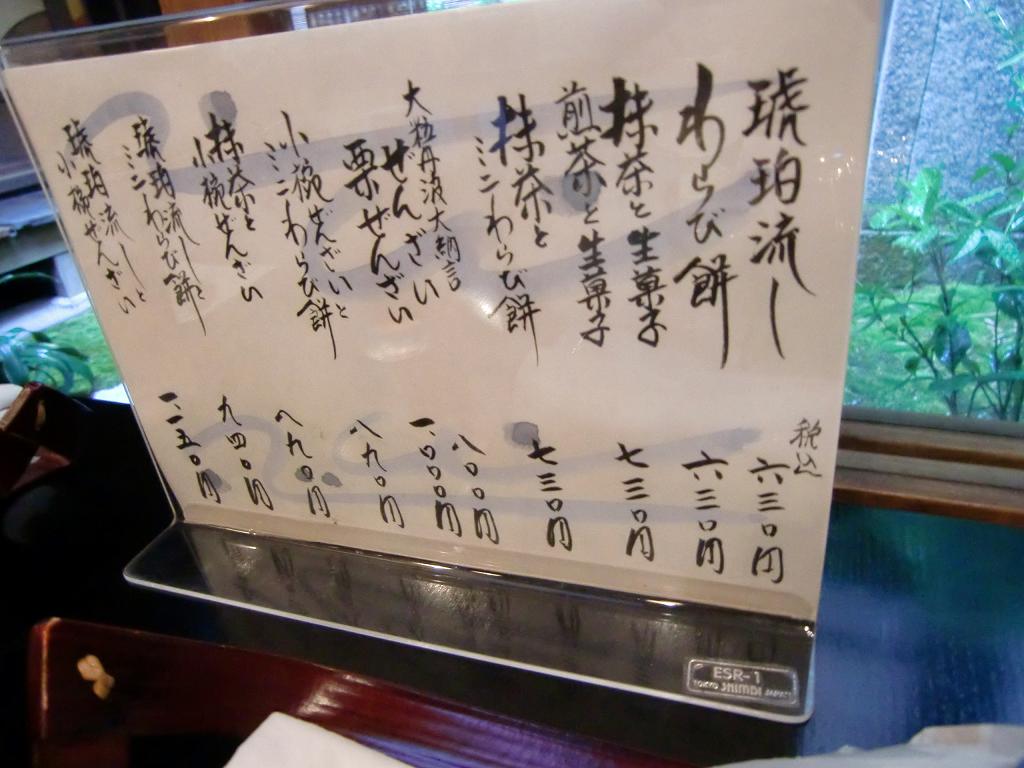 琥珀流し
わらび餅
抹茶と生菓子
煎茶と生菓子
抹茶と
ミニわらび餅
大粒丹波大納言
ぜんざい
栗ぜんざい
小椀ぜんざいと
ミニわらび餅
抹茶と
小椀ぜんざい
琥珀流しと
ミニわらび餅
琥珀流しと
小椀ぜんざい
税込
六三〇円
六三〇円
七三〇円
七三〇円
八〇〇円
一、〇〇〇円
八九〇円
八九〇円
九四〇円
一、二五〇円
ESR-1
TOKYO SHIMBI JAPAN